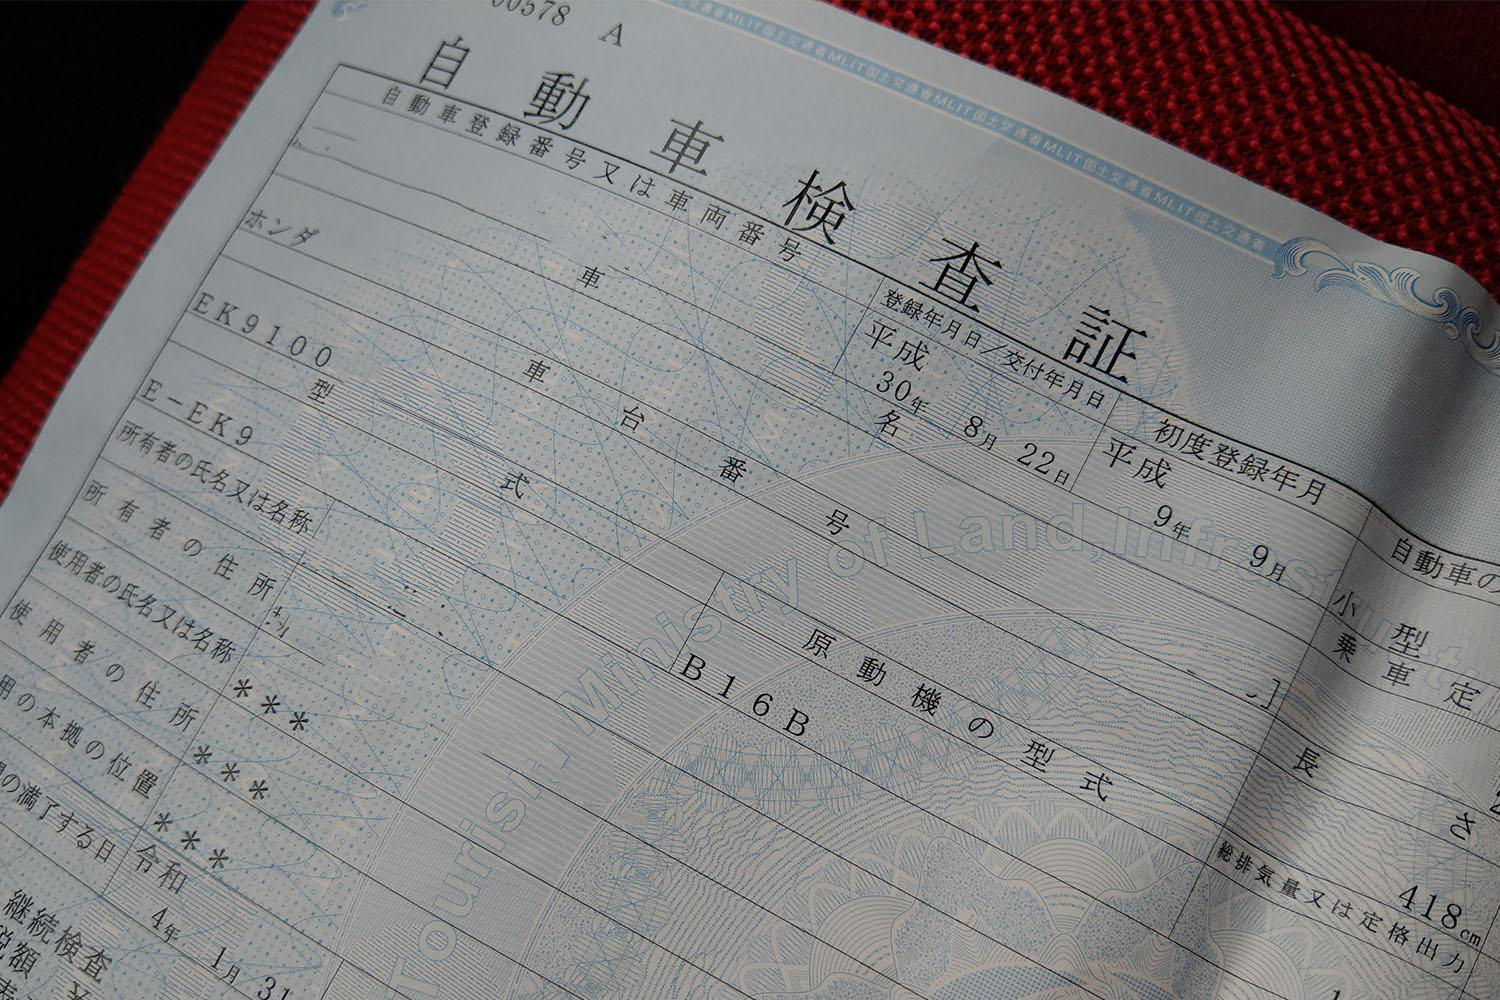 00578 A
MLIT国土交通省MLIT国土交通省MLIT国土交通省MLIT国土交通省MLIT国土交通省MLIT国土交通省
自動車検査証
自動車登録番号又は車両番号
登録年月日/交付年月日
初度登録年月
自動車の
平成
30年 8月 22日
平成
9年 9月
小型
車名
ホンダ
乗車定
車台番号
EK9100
長さ
418cm
型式
原動機の型式
E-EK9
B16B
総排気量又は定格出力
所有者の氏名又は名称
所有者の住所
使用者の氏名又は名称
***
使用者の住所
***
用の本拠の位置
***
の満了する日
令和
4年 1月 31
継続検査
税額
Ministry of Land,Infrast
Tourism